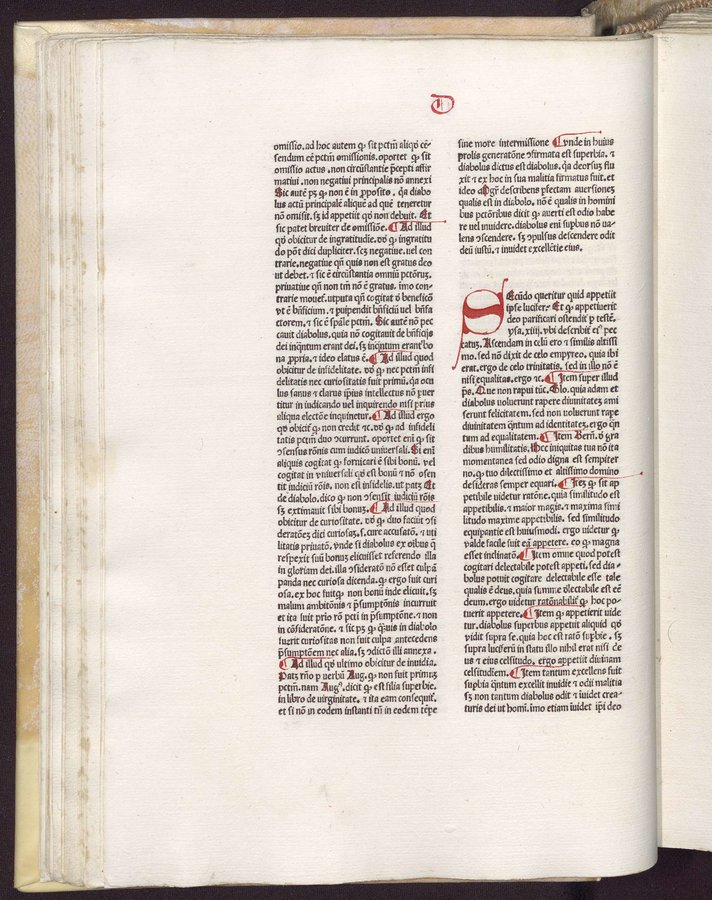 D
omissio. ad hoc autem ꝙ sit pctm̄ aliqd̛ cē-
sendum eē pctm̄ omissionis. oportet ꝙ sit
omissio actus. non circūstantie p̄cepti affir
matiui. non negatiui principalis nō annexi
Sic autē pz ꝙ non ē in ꝓposito. q̄a diabo
lus actū principalē aliquē ad quē teneretur
nō omisit. sz id appetiit qd̛ non debuit. Et
sic patet breuiter de omissiōe. ¶ Ad illud
qd̛ obicitur de ingratitudie. dd̛ ꝙ ingratitu
do pōt dici dupliciter. scz negatiue. uel con
trarie. negatiue qn̄ quis non est gratus deo
ut debet. ⁊ sic ē circūstantia omniū pctōruz.
priuatiue qn̄ non tm̄ nō ē gratus. imo con-
trarie mouet̛. utputa qn̄ cogitat ꝙ beneficō
vt ē bn̄ficium. ⁊ puipendit bn̄ficiū uel bn̄fa
ctorem. ⁊ sic ē sp̄ale pctm̄. Sic autē nō pec
cauit diabolus. quia nōn cogitauit de bn̄ficijs
dei inq̄ntum erant dei. sz inc̄ntum erant bo
na ꝓpria. ⁊ ideo elatus ē. ¶ Ad illud quod
obicitur de infidelitate. dd̛ ꝙ nec pctm̄ infi
delitatis nec curiositatis fuit primū. q̄a ocu
lus sanus ⁊ clarus ip̄ius intellectus nō ꝑuer
titur in iudicando uel inquirendo nisi prius
aliqua electōe inquinetur. ¶ Ad illud ergo
qd̛ obicit̛ ꝙ non credit ⁊c. dd̛ ꝙ ad infideli
tatis pctm̄ duo ↄcurrunt. oportet eni̅ ꝙ sit
ↄsensus rōnis cum iudicō uniuersali. Si eni̅
aliquis cogitat ꝙ fornicari ē sibi bonū. vel
cogitat in vniuersali qd̛ est bonū ⁊ nō ↄsen
tit iudiciū rōis. non est infidelis. ut patz Et
de diabolo. dico ꝙ non ↄsensit iudiciū rōis
sz extimauit sibi bonuz. ¶ Ad illud quod
obicitur de curiositate. dd̛ ꝙ duo faciūt ↄsi
deratōez dici curiosaz. s. cure accusatō. ⁊ uti
litatis priuatō. vnde si diabolus ex oibus q̄
respexit suū bonuz elicuisset referendo illa
in gloriam dei. illa ↄsideratō nō esset culpā
panda nec curiosa dicenda. ꝙ ergo fuit curi
osa. ex hoc fuit ꝙ non bonū inde elicuit. sz
malum ambitōnis ⁊ p̄sumptōnis incurruit
et ita fuit prio rō pcti in p̄sumptōne. ⁊ non
in cōsideratōne. ⁊ sic pz ꝙ q̄uis in diabolo
fuerit curiositas non fuit culpa antecedens
p̄sumptōem nec alia. sz ↄdictō illi annexa.
¶ Ad illud qd̛ ultimo obicitur de inuidia.
Patz rn̄o p̄ verbū Aug. ꝙ non fuit primuz
pctm̄. nam Augꝰ. dicit ꝙ est filia superbie.
in libro de uirginitate. ⁊ ita eam consequit̛.
et si nō in eodem instanti tn̄ in eodem tēpe
siue more intermissione ¶ vnde in huius
prolis generatōne ↄfirmata est superbia. ⁊
diabolus dictus est diabolus. q̄a deorsuz flu
xit ⁊ ex hoc in sua malitia firmatus fuit. et
ideo Aug̛ describens ꝑfectam auersionez
qualis est in diabolo. nō ē qualis in homini
bus pctōribus dicit ꝙ auerti est odio habe
re uel inuidere. diabolus eni̅ suꝑbus nō ua-
lens ↄscendere. sz ↄpulsus descendere odit
deū iustū. ⁊ inuidet excellētie eius.
SEcūdo queritur quid appetiit
ipse lucifer. Et ꝙ appetiuerit
deo parificari ostendit̛ ꝑ testē.
ysa. xiiij. vbi describit̛ eiꝰ pec
catuz. Ascendam in celū ero ⁊ similis altissi
mo. sed nō dixit de celo empyreo. quia ibi
erat. ergo de celo trinitatis. sed in illo nō ē
nisi equalitas. ergo ⁊c. ¶ Item super illud
ps̄. Que non rapui tūc. Glo. quia adam et
diabolus uoluerunt rapere diuinitatez ami
serunt felicitatem. sed non uoluerunt rape
diuinitatem q̄ntum ad identitatez. ergo q̄n
tum ad equalitatem. ¶ Item Bern̄. d̛ gra
dibus humilitatis. Hec iniquitas tua nō ita
momentanea sed odio digna est sempiter
no. ꝙ tuo dilectissimo et altissimo domino
desideras semper equari. ¶ Itez ꝙ sit ap
petibile uidetur ratōne. quia similitudo est
appetibilis. ⁊ maior magis. ⁊ maxima simi
litudo maxime appetibilis. sed similitudo
equiparantie est huiusmodi. ergo uidetur ꝙ
valde facile fuit eā appetere. eo ꝙ magna
esset inclinatō. ¶ Item omne quod potest
cogitari delectabile potest appeti. sed dia-
bolus potuit cogitare delectabile esse tale
qualis ē deus. quia summe ↄlectabile est eē
deum. ergo uidetur ratōnabilit̛ ꝙ hoc po-
tuerit appetere. ¶ Item ꝙ appetierit uide
tur. diabolus superbus appetiit aliquid qd̛
vidit supra se. quia hoc est ratō suꝑbie. sz
supra luciferū in statu illo nihil erat nisi de
us ⁊ eius celsitudo. ergo appetiit diuinam
celsitudiem. ¶ Item tantum excellens fuit
suꝑbia q̄ntum excellit inuidie ⁊ odij malitia
sz non tantum diabolus odit ⁊ īuidet crea-
turis dei ut homi. imo etiam īuidet ip̄i deo